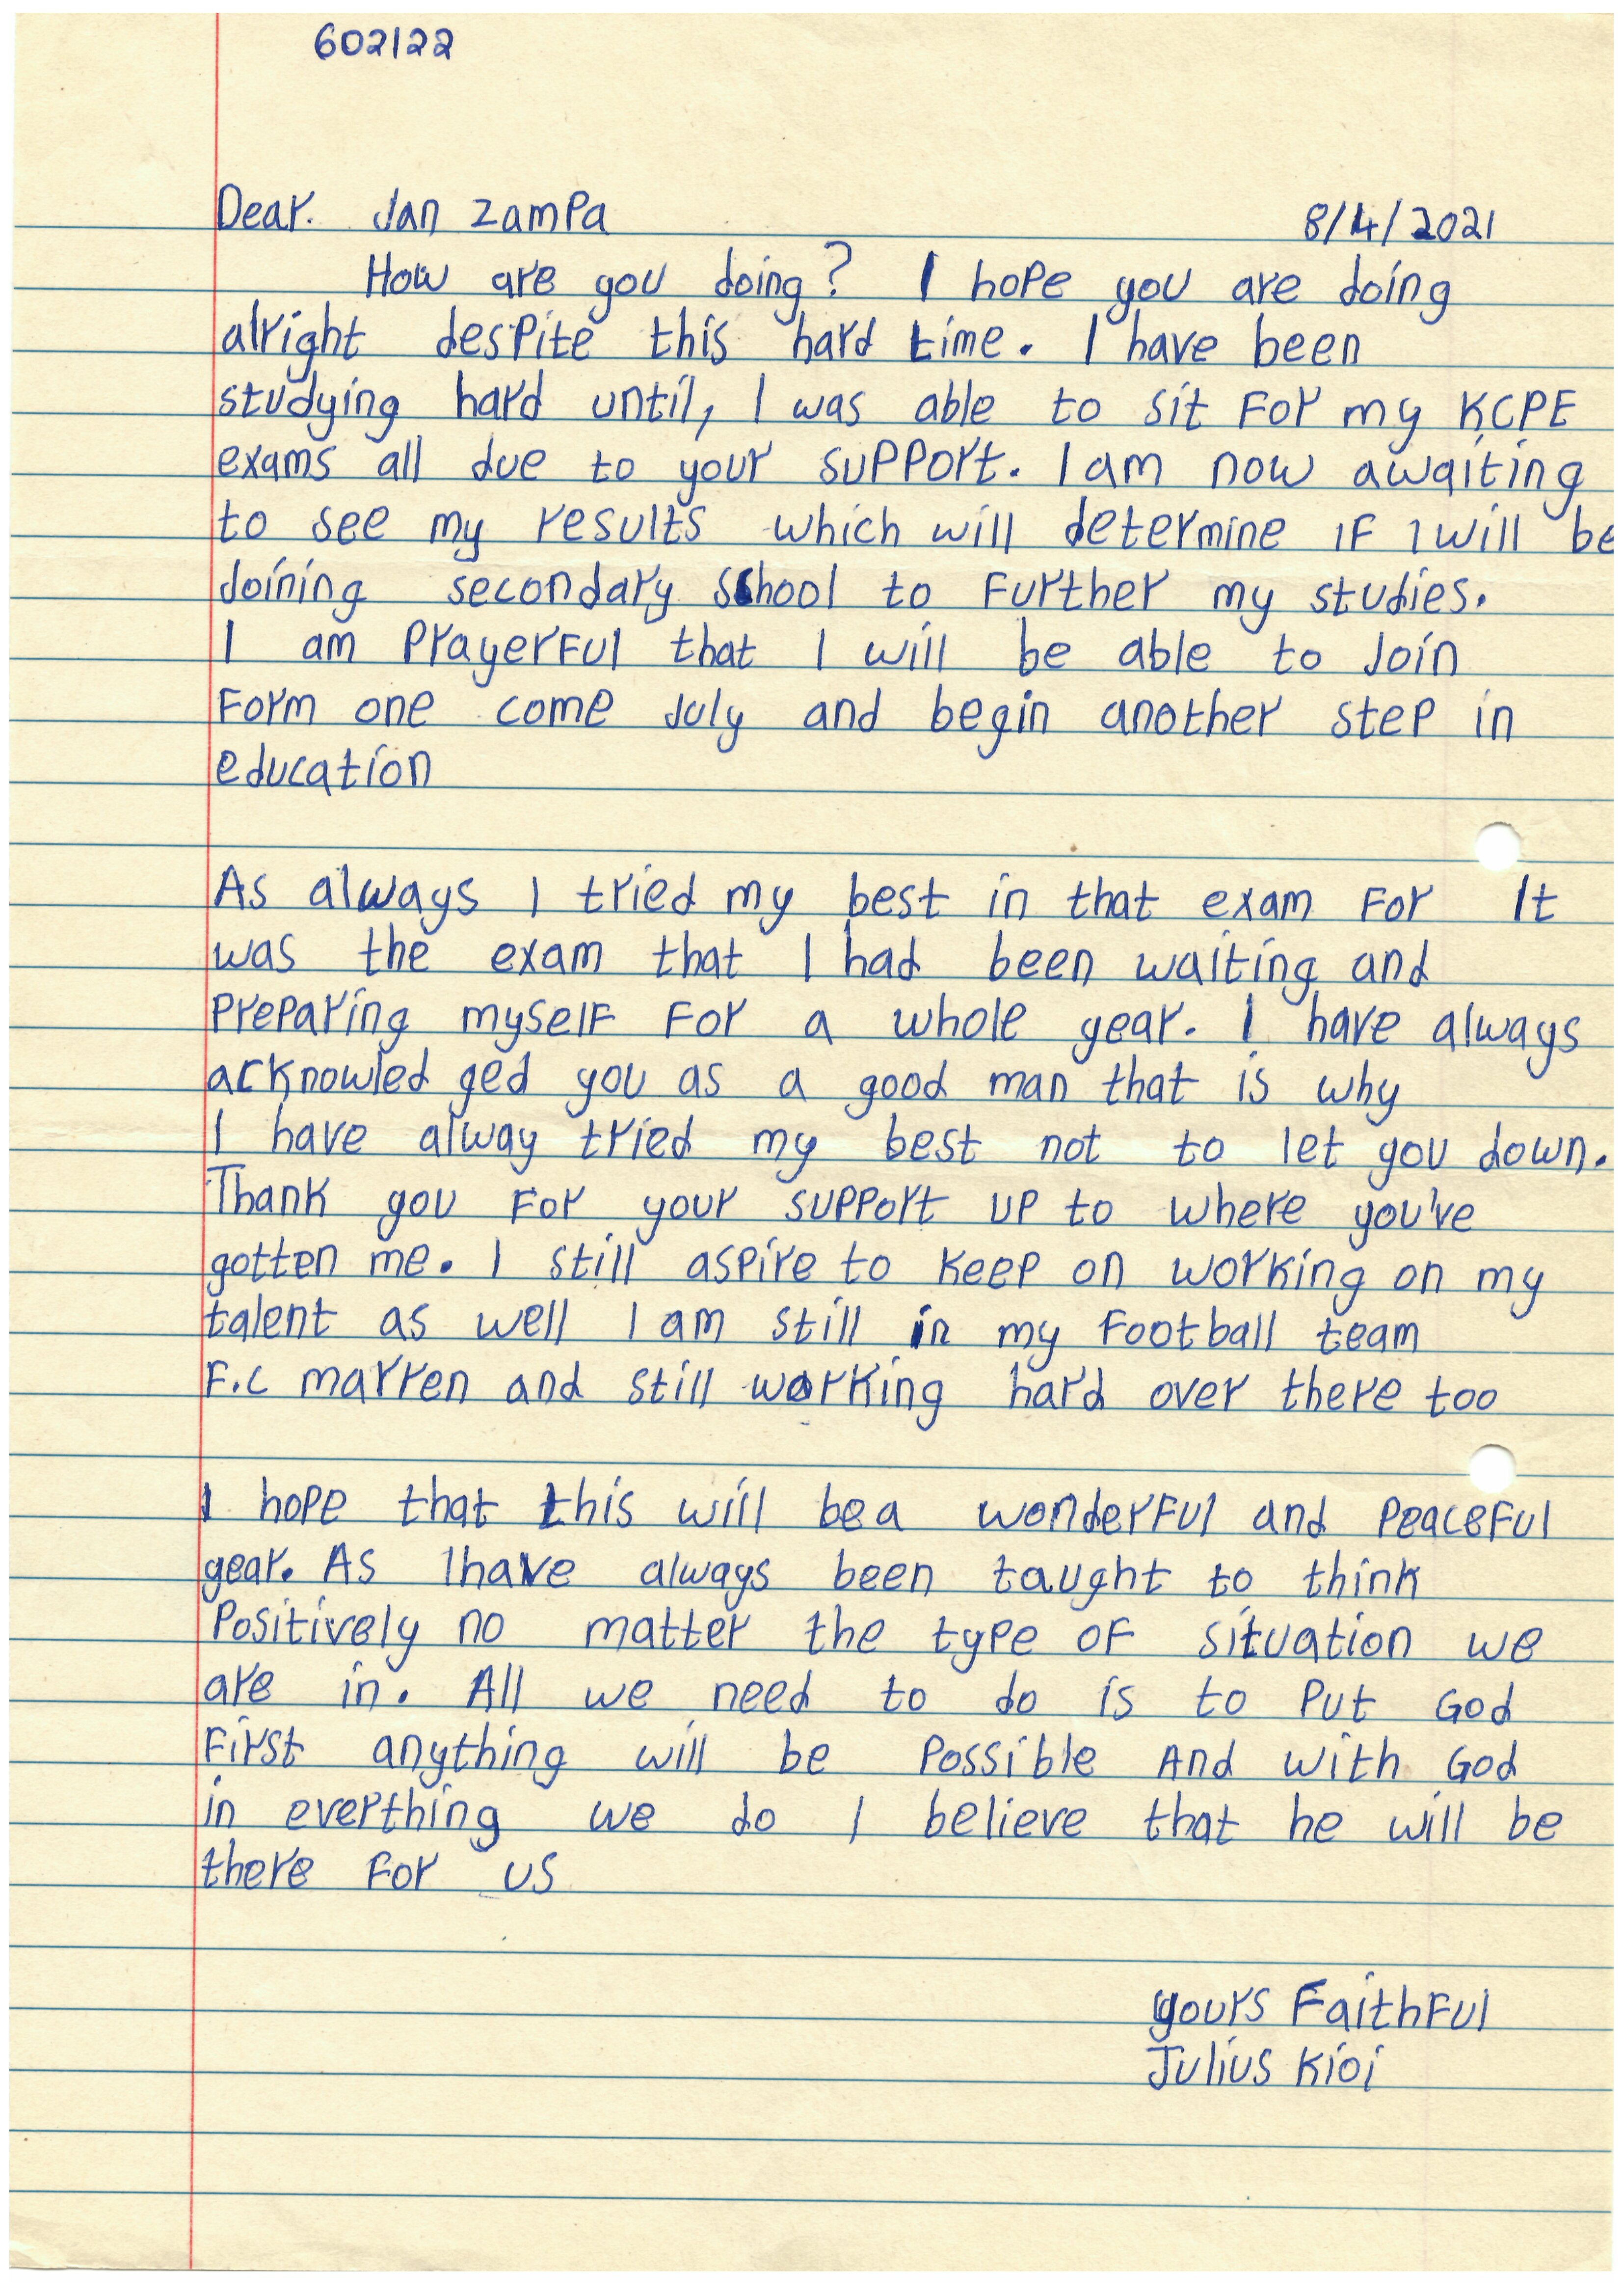 602122
Dear. Jan Zampa 8/4/2021
How are you doing? I hope you are doing
alright despite this hard time. I have been
studying hard until, I was able to sit For my KCPE
exams all due to your support. I am now awaiting
to see my results which will determine if I will be
Joining secondary school to Further my studies.
I am PrayerFul that I will be able to Join
Form one come July and begin another step in
education
As always I tried my best in that exam For It
was the exam that I had been waiting and
Preparing myself For a whole year. I have always
acknowled ged you as a good man that is why
I have alway tried my best not to let you down.
Thank you For your support up to where you've
gotten me. I still aspire to keep on working on my
talent as well I am still in my Football team
F.C marren and still working hard over there too
I hope that this will be a wonderFul and PeaceFul
year. As I have always been taught to think
Positively no matter the type of situation we
are in. All we need to do is to Put God
First anything will be Possible And with God
in everthing we do I believe that he will be
there For us
yours FaithFul
Julius Kioi